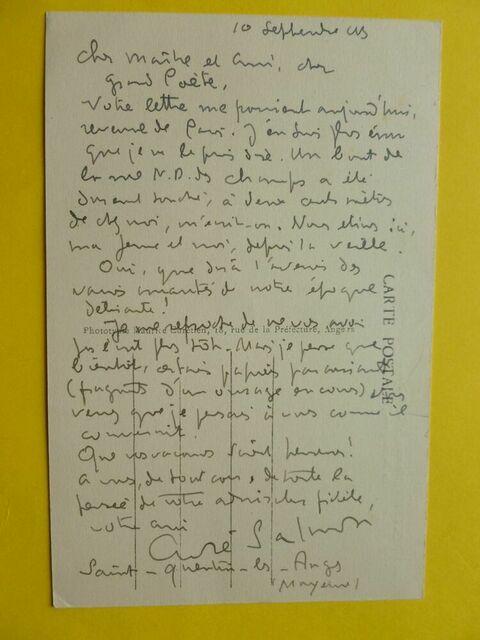 10 Septembre 43
Cher Maître et ami, cher
grand Poète,
Votre lettre me parvient aujourd'hui,
revenue de Paris. J'en suis plus ému
que je ne le puis dire. Un bout de
la rue N.D. des Champs a été
durement touché, à deux cents mètres
de chez moi, m'écrit-on. Nous étions ici,
ma femme et moi, depuis la veille.
Oui, que dira l'avenir des
de notre époque
délirante!
Je me reproche de ne vous avoir
pas écrit plus tôt. Mais je pense que
bientôt, certains papiers parisiens
(fragments d'un ouvrage en cours)
verrez que je pensais à vous comme il
convenait.
Que vos vacances soient heureuses!
À vous, de tout cœur, de toute la
pensée de votre admirateur fidèle,
votre ami
André Salmon
Saint-Quentin-les-Anges
(Mayenne)
CARTE POSTALE
Phototypie Maurice 18, rue de la Préfecture, Angers